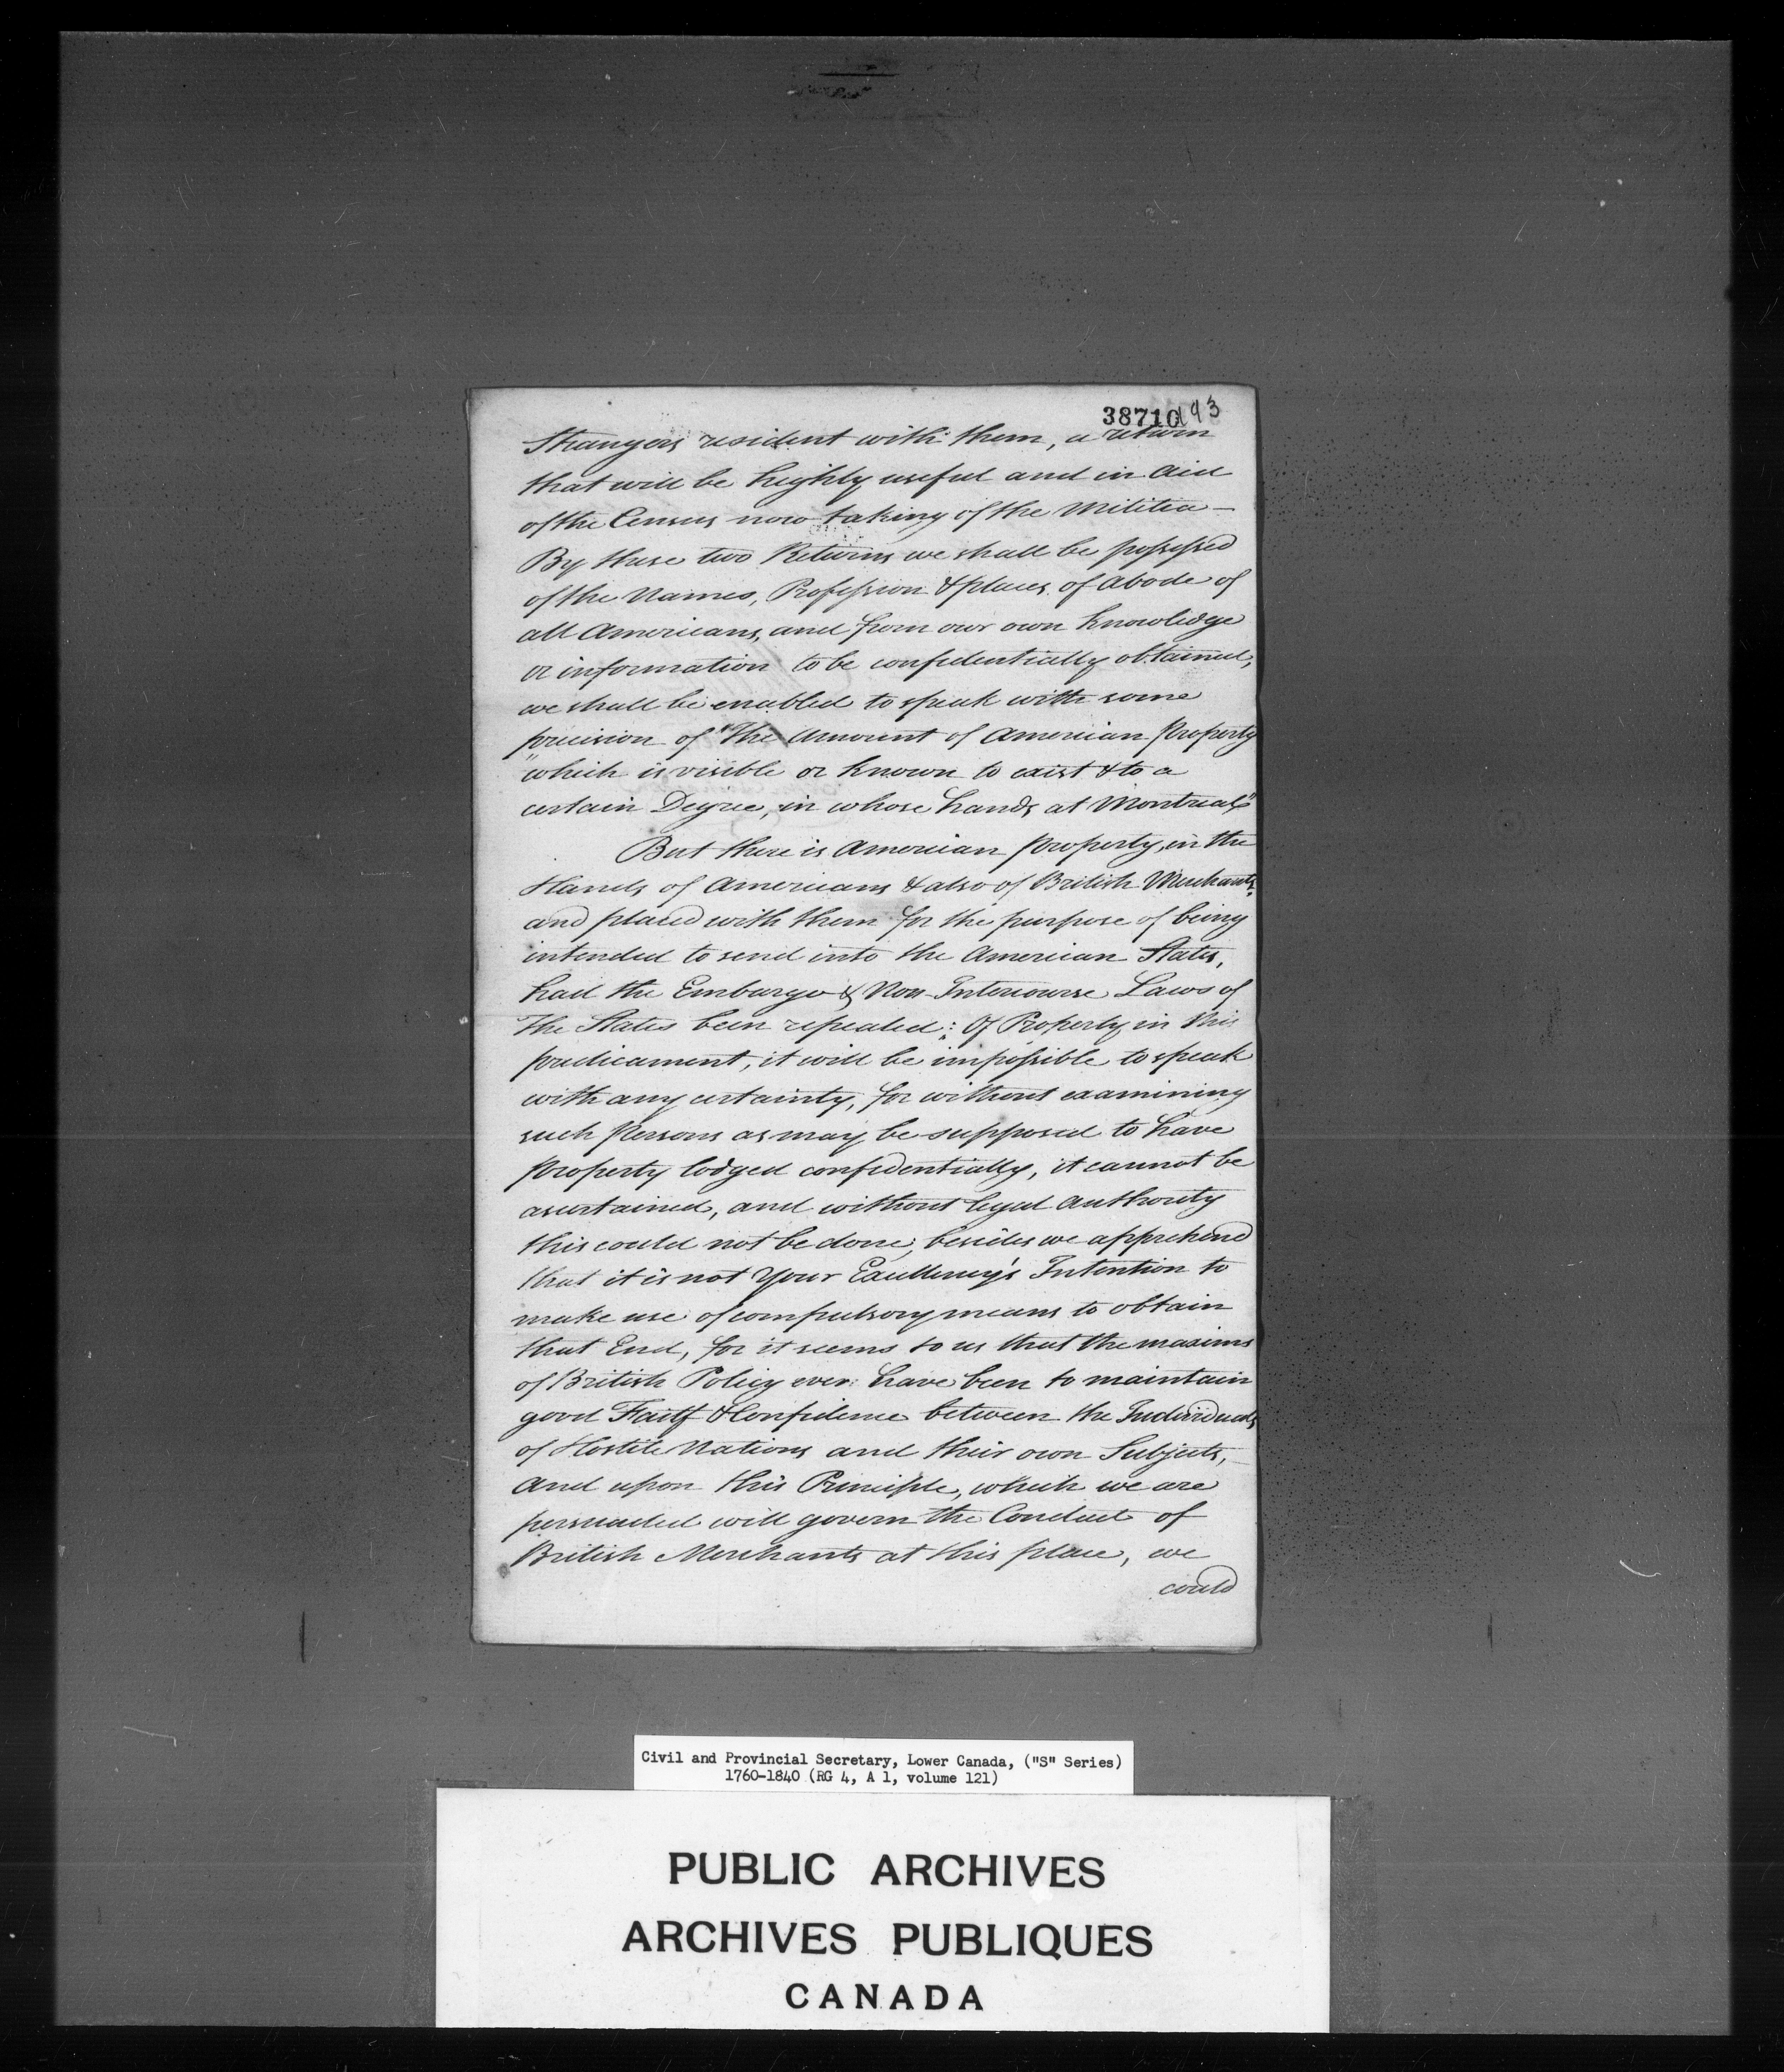 38710 193
Strangers resident with them, a return
that will be highly useful and in Aid
of the Census now taking of the Militia —
By these two Returns we shall be possessed
of the Names, Profession & places of Abode of
all Americans, and from our own Knowledge
or information to be confidentially obtained,
we shall be enabled to speak with some
precision of "The Amount of American Property
"which is visible or known to exist & to a
certain Degree, in whose hands at Montreal"
But there is American Property, in the
Hands of Americans & also of British Merchants,
and placed with them for the purpose of being
intended to send into the American States,
had the Embargo & Non-Intercourse Laws of
The States been repealed; Of Property in this
predicament, it will be impossible to speak
with any certainty, for without examining
such Persons as may be supposed to have
Property lodged confidentially, it cannot be
ascertained, and without legal authority
this could not be done, besides we apprehend
that it is not Your Excellency's Intention to
make use of compulsory means to obtain
that End, for it seems to us that the maxims
of British Policy ever have been to maintain
good Faith & Confidence between the Individuals
of Hostile Nations and their own Subjects,
and upon this Principle, which we are
persuaded will govern the Conduct of
British Merchants at this place, we
could
Civil and Provincial Secretary, Lower Canada, ("S" Series)
1760-1840 (RG 4, A 1, volume 121)
PUBLIC ARCHIVES
ARCHIVES PUBLIQUES
CANADA